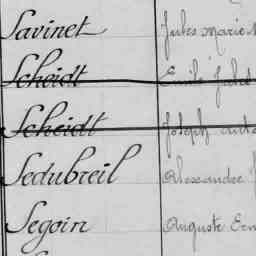 Savinet Jules Marie
Scheidt Emile Jules
Scheidt Joseph
Sedubreil Alexandre
Segoin Auguste